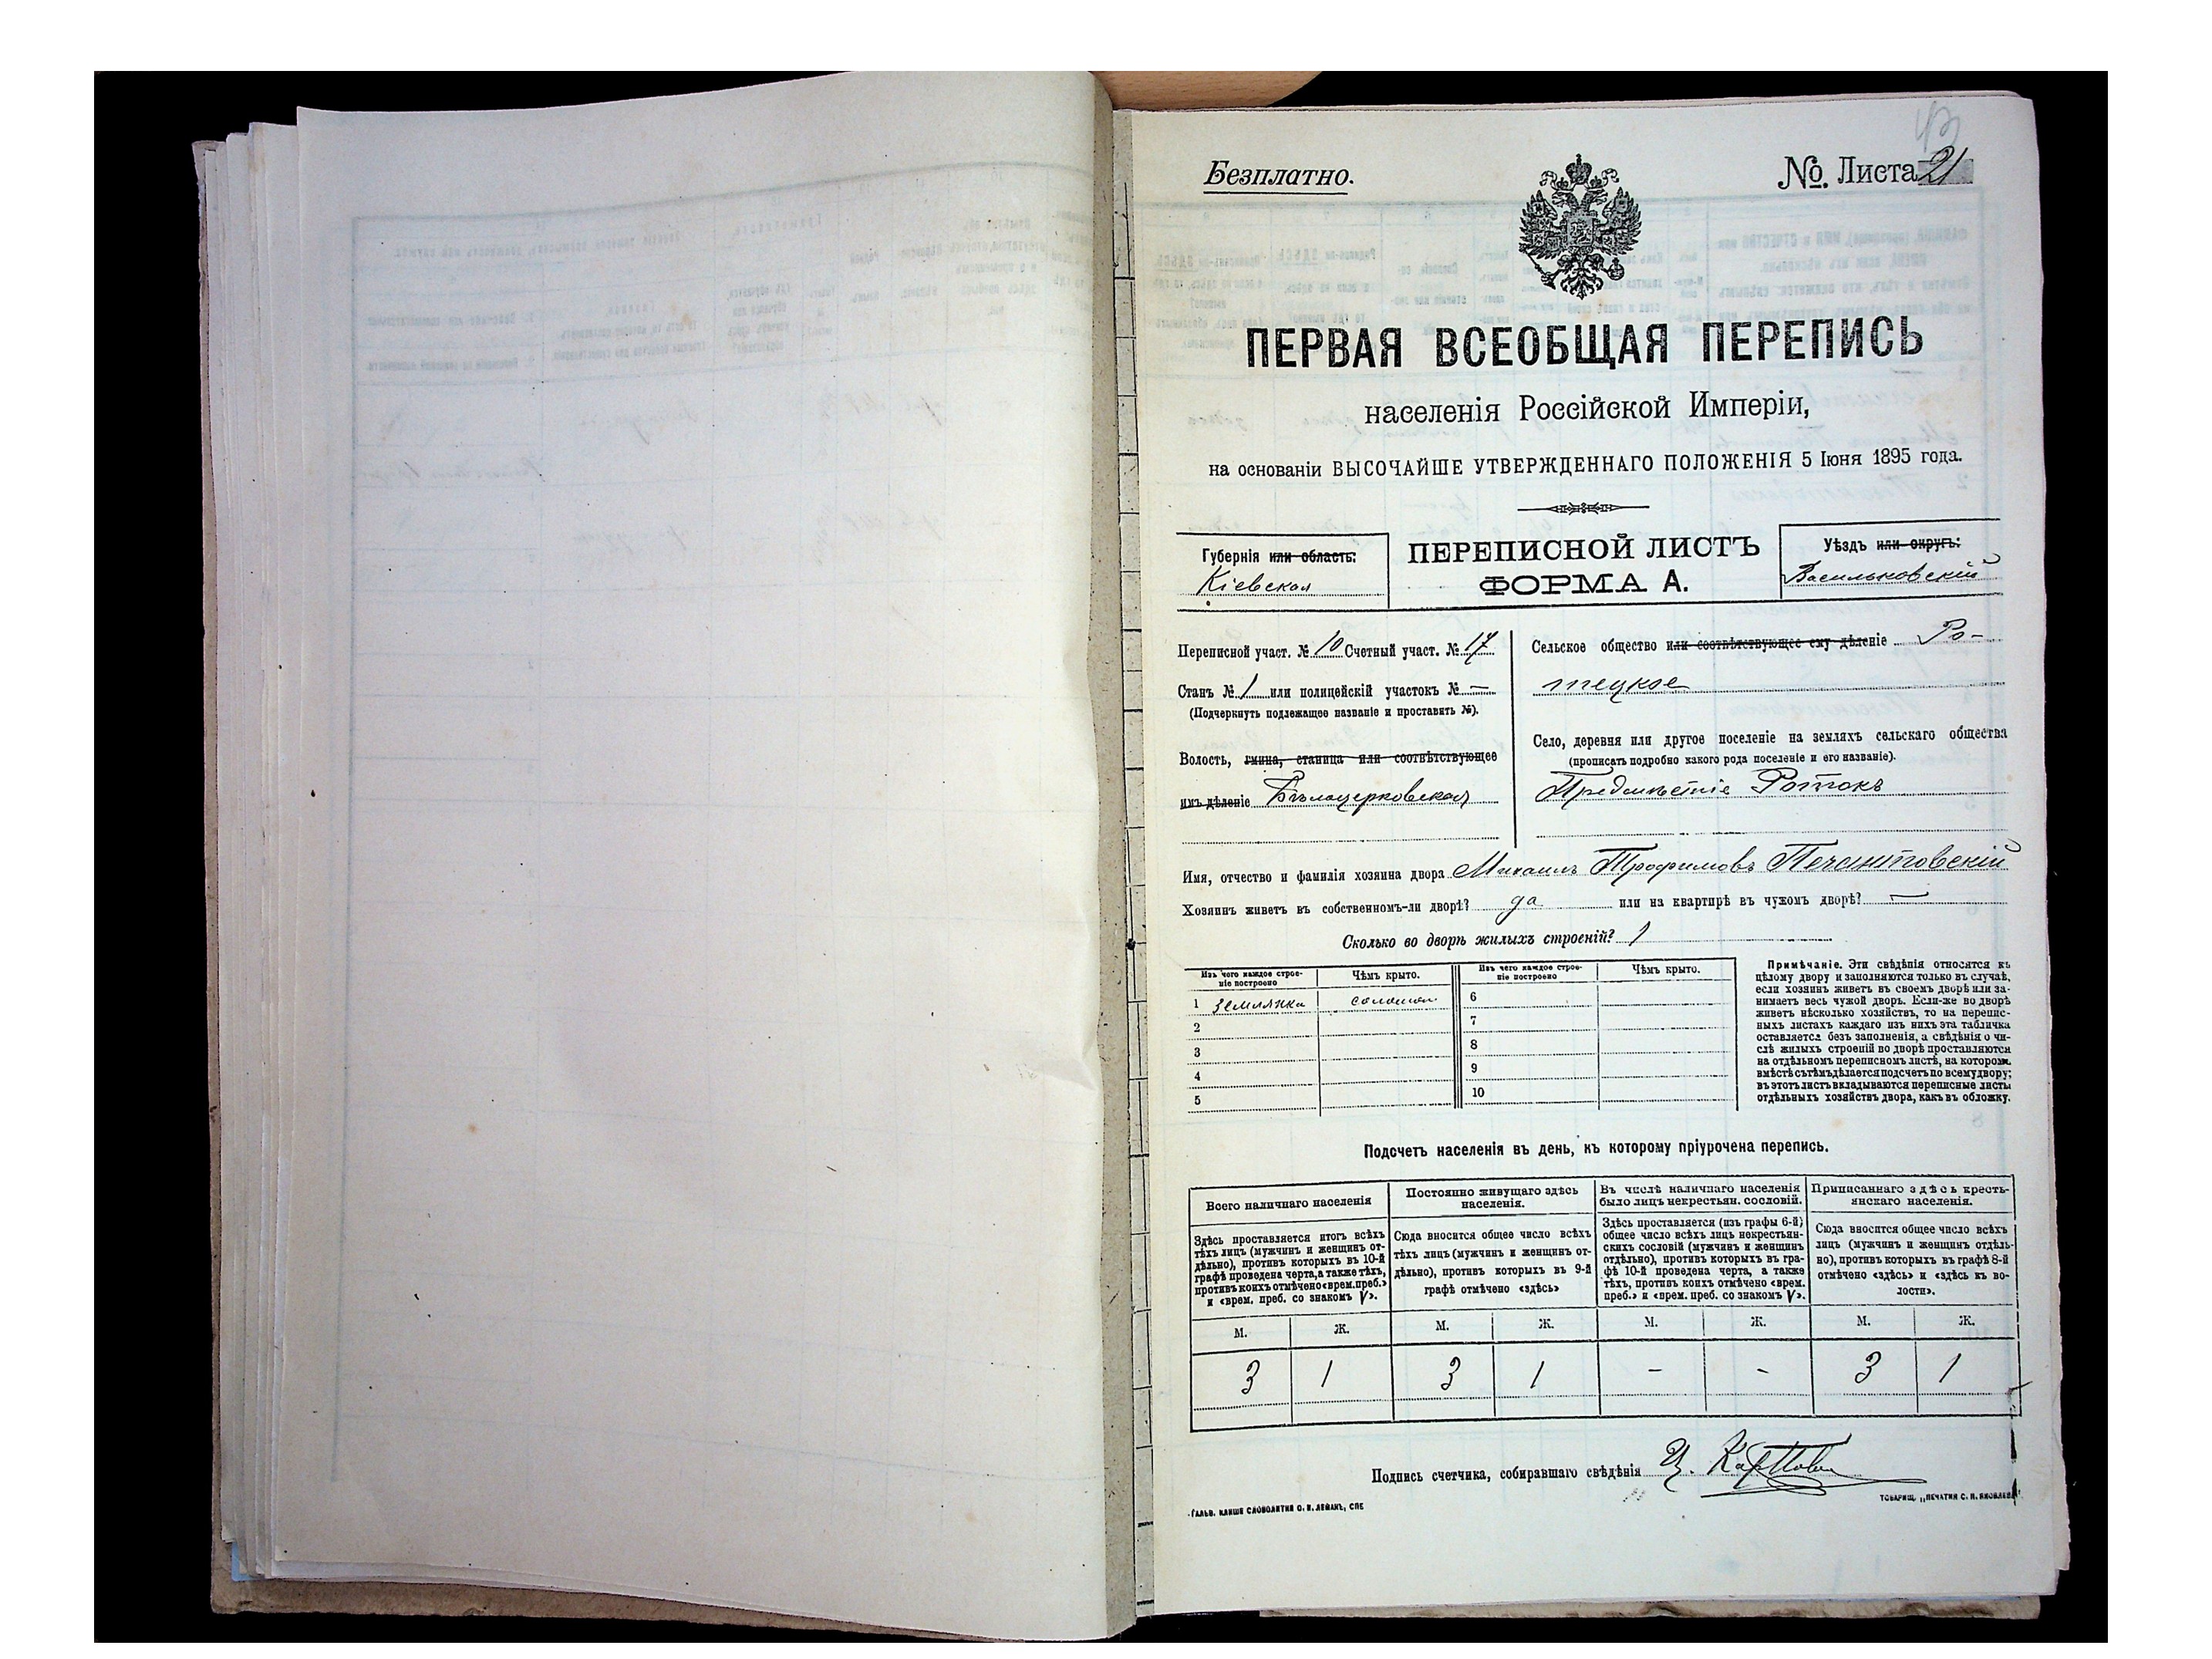 Безплатно.
No. Листа 21
ПЕРВАЯ ВСЕОБЩАЯ ПЕРЕПИСЬ
населенія Россійской Имперіи,
на основаніи ВЫСОЧАЙШЕ УТВЕРЖДЕННАГО ПОЛОЖЕНІЯ 5 Іюня 1895 года.
Губернія или область:
Кіевская
ПЕРЕПИСНОЙ ЛИСТЪ
ФОРМА А.
Уѣздъ или округъ:
Васильковскій
Переписной участ. № 10 Счетный участ. № 17
Станъ № 1 или полицейскій участокъ № —
(Подчеркнуть подлежащее названіе и проставить №).
Волость, гмина, станица или соотвѣтствующее
имъ дѣленіе Бѣлоцерковская
Сельское общество или соотвѣтствующее ему дѣленіе Ро-
тецкое
Село, деревня или другое поселеніе на земляхъ сельскаго общества
(прописать подробно какого рода поселеніе и его названіе).
Предмѣстіе Ротокъ
Имя, отчество и фамилія хозяина двора Михаилъ Трофимовъ
Хозяинъ живетъ въ собственномъ-ли дворѣ? да или на квартирѣ въ чужомъ дворѣ? —
Сколько во дворѣ жилыхъ строеній? 1
Изъ чего каждое строе-
ніе построено
Чѣмъ крыто.
Изъ чего каждое строе-
ніе построено
Чѣмъ крыто.
1 землянка соломой 6
2 7
3 8
4 9
5 10
Примѣчаніе. Эти свѣдѣнія относятся къ
цѣлому двору и заполняются только въ случаѣ,
если хозяинъ живетъ въ своемъ дворѣ или за-
нимаетъ весь чужой дворъ. Если-же во дворѣ
живетъ нѣсколько хозяйствъ, то на перепис-
ныхъ листахъ каждаго изъ нихъ эта табличка
оставляется безъ заполненія, а свѣдѣнія о чи-
слѣ жилыхъ строеній во дворѣ проставляются
на отдѣльномъ переписномъ листѣ, на которомъ
вмѣстѣ съ тѣмъ дѣлается подсчетъ по всему двору;
въ этотъ листъ вкладываются переписные листы
отдѣльныхъ хозяйствъ двора, какъ въ обложку.
Подсчетъ населенія въ день, къ которому пріурочена перепись.
Всего наличнаго населенія
Здѣсь проставляется итогъ всѣхъ
тѣхъ лицъ (мужчинъ и женщинъ от-
дѣльно), противъ которыхъ въ 10-й
графѣ проведена черта, а также тѣхъ,
противъ коихъ отмѣчено «врем. преб.»
и «врем. преб. со знакомъ V».
Постоянно живущаго здѣсь
населенія.
Сюда вносится общее число всѣхъ
тѣхъ лицъ (мужчинъ и женщинъ от-
дѣльно), противъ которыхъ въ 9-й
графѣ отмѣчено «здѣсь»
Въ числѣ наличнаго населенія
было лицъ некрестьян. сословій.
Здѣсь проставляется (изъ графы 6-й)
общее число всѣхъ лицъ некрестьян-
скихъ сословій (мужчинъ и женщинъ
отдѣльно), противъ которыхъ въ гра-
фѣ 10-й проведена черта, а также
тѣхъ, противъ коихъ отмѣчено «врем.
преб.» и «врем. преб. со знакомъ V».
Приписаннаго здѣсь кресть-
янскаго населенія.
Сюда вносится общее число всѣхъ
лицъ (мужчинъ и женщинъ отдѣль-
но), противъ которыхъ въ графѣ 8-й
отмѣчено «здѣсь» и «здѣсь къ во-
лости».
М. Ж. М. Ж. М. Ж. М. Ж.
3 1 3 1 - - 3 1
Подпись счетчика, собиравшаго свѣдѣнія
ГАЛЬВ. КЛИШЕ СЛОВОЛИТНИ О. И. ЛЕМАНЪ, СПБ
ТОВАРИЩ. „ПЕЧАТНЯ С. П. ЯКОВЛЕВА"